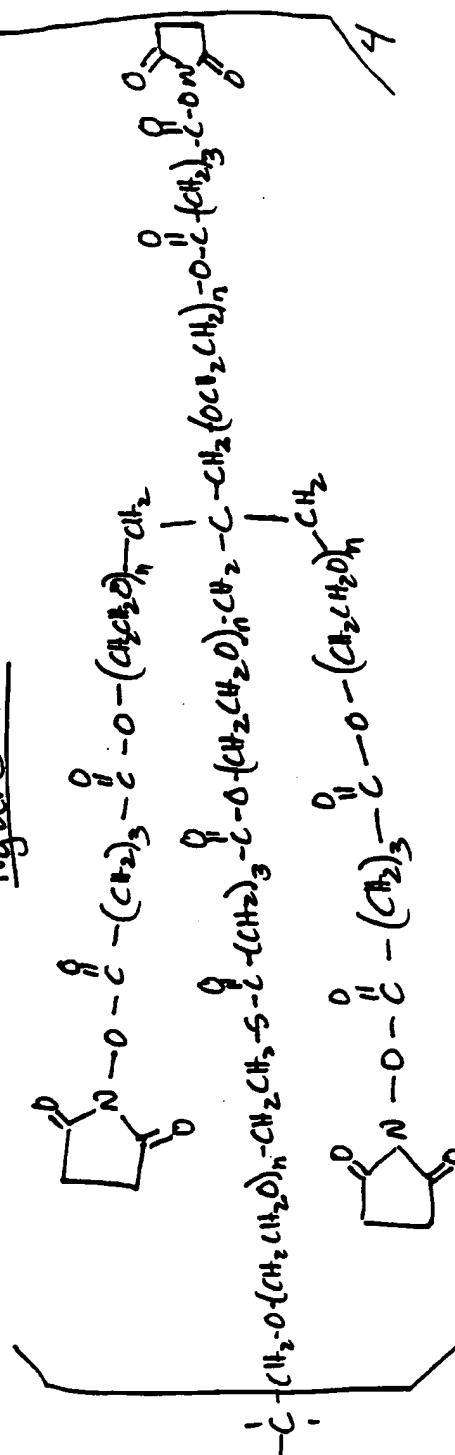 O O O
N-O-C-(CH2)3-C-O-(CH2CH2O)n-CH2
O
O O O O O O
-C-CH2-O-(CH2CH2O)n-CH2CH2-S-C-(CH2)3-C-O-(CH2CH2O)n-CH2-C-CH2(OCH2CH2)n-O-C-(CH2)3-C-ON
O
O O O
N-O-C-(CH2)3-C-O-(CH2CH2O)n CH2
O
4